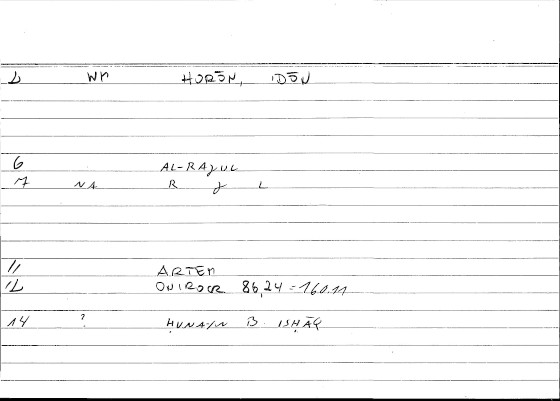 2 WM HORŌN, IDŌN
6 AL-RAǧUL
7 NA R ǧ L
11 ARTEM
12 ONIROCR 86,24 = 160.11
14 ? ḤUNAYN B. ISḤĀQ